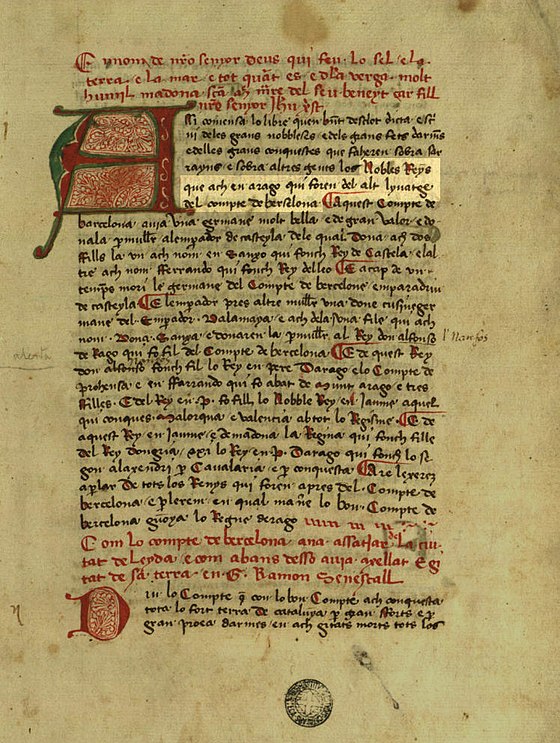 E nnom de nr̃o senyor deus qui feu lo sel e la
terra e la mar e tot quãt es e dla verga molt
humil madona scã mr̃e del seu beneyt car fill
nr̃o senyor Jhũ xp̃st
Assi comensa lo libre quen bñt desclot dicta e scr̃
iu deles grans nobleses e dels grans fets darmes
e deles grans conquestes que faheren sobra sar
rayns e sobra altres gens los Nobles Reys
que ach en arago qui foren del alt lynatge
del compte de bersalona Caquest Compte de
barcelona auia vna germane molt bella e de gran valor e do
nala p muller alemperador de casteyla de le qual Dona ach dos
fills la vn ach nom en Sanxo qui fonch Rey de Castela e lal
tre ach nom fferrando qui fonch Rey del leo E a cap de vn
temps mori le germane del Compte de bercelone emparadriu
de casteyla E lemperador pres altre muller vna done cusine ger
mane del Emperador Dalamaya e ach de la sua file qui ach
nom Dona Sanxa e donaren la p muller al Rey don alfonso
de Rago qui fo fil del Compte de barcelona E de quest Rey
don alfonso fonch fil lo Rey en pere Darago e lo Compte de
prohensa e en ffarrando qui fo abat de munt arago e tres
filles E del Rey en P. fo fill lo Nobble Rey en Jaume aquel
qui conques Malorqua e valencia ab tot lo Regisme E de
aquest Rey en Jaume e de madona la Regina qui fonch fille
del Rey dongria exi lo Rey en P. Darago qui fonch lo se
gon alaxendri p Caualaria e p conquesta Are lexerez
a parlar De tots los Reys qui foren apres del Compte de
bercelona e parlerem en qual mañe lo bon Compte de
bercelona guoya lo Regne de rago
Com lo compte de bercelona ana assatjar la ciu
tat de Leyda e com abans desso auia
tat de sa terra en G. Ramon Senescall
Diu lo Compte q̃ con lo bon Compte ach conquesta
tota lo fort terra de cataluya p gran sforts e p
gran proea darmes en ach gitats morts tots los
alerta
l' Nanfos